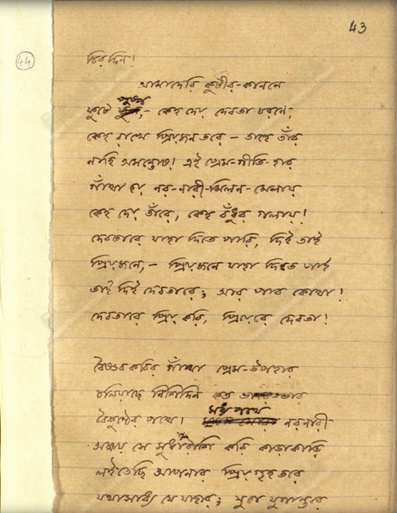 43
44
চিরদিন!
আমাদেরি কুটীর-কাননে
পুষ্প
ফুটে,- কেহ দেয় দেবতা চরণে,
কেহ রাখে প্রিয়জন তরে - তাহে তাঁর
নাহি অসন্তোষ! এই প্রেম-গীতি-হার
গাঁথা হয় নর-নারী-মিলন-মেলায়
কেহ দেয় তাঁরে, কেহ বঁধুর গলায়!
দেবতারে যাহা দিতে পারি, দিই তাই
প্রিয়জনে,- প্রিয়জনে যাহা দিতে পাই
তাই দিই দেবতারে; আর পাব কোথা!
দেবতারে প্রিয় করি, প্রিয়েরে দেবতা!
বৈষ্ণব কবির গাঁথা প্রেম-উপহার
চলিয়াছে নিশিদিন কত ভারে ভার
মধ্য পথে
বৈকুণ্ঠের পথে! নরনারী
অক্ষয় সে সুধারাশি করি কাড়াকাড়ি
লইতেছে আপনার প্রিয়গৃহ তরে
যথাসাধ্য যে যাহার; যুগে যুগান্তরে